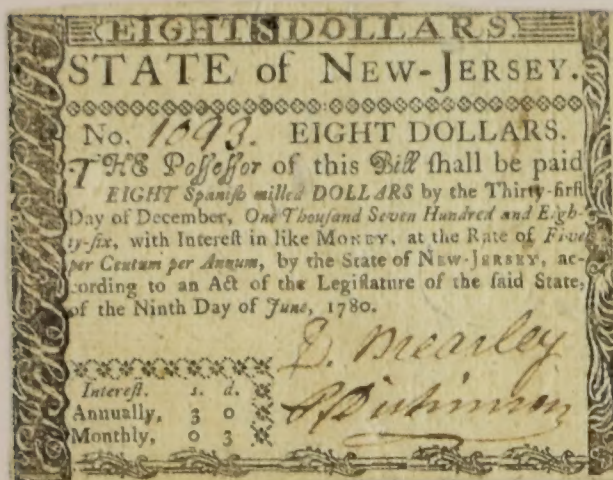 EIGHT DOLLARS.
STATE of NEW-JERSEY.
No. 1093. EIGHT DOLLARS.
THE Poſſeſſor of this Bill ſhall be paid
EIGHT Spaniſh milled DOLLARS by the Thirty-firſt
Day of December, One Thouſand Seven Hundred and Eigh-
ty-ſix, with Intereſt in like MONEY, at the Rate of Five
per Centum per Annum, by the State of NEW-JERSEY, ac-
cording to an Act of the Legiſlature of the ſaid State,
of the Ninth Day of June, 1780.
D. Brearley
Intereſt. s. d.
Annually, 3 0
Monthly, 0 3